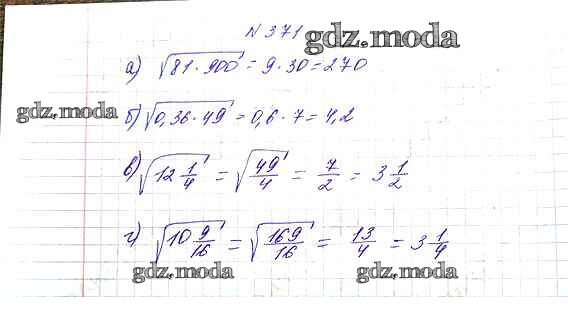 N 371 gdz.moda
а) √81·900 = 9·30 = 270
gdz.moda
б) √0,36·49 = 0,6·7 = 4,2
в) √12 1/4 = √49/4 = 7/2 = 3 1/2
г) √10 9/16 = √169/16 = 13/4 = 3 1/4
gdz.moda gdz.moda